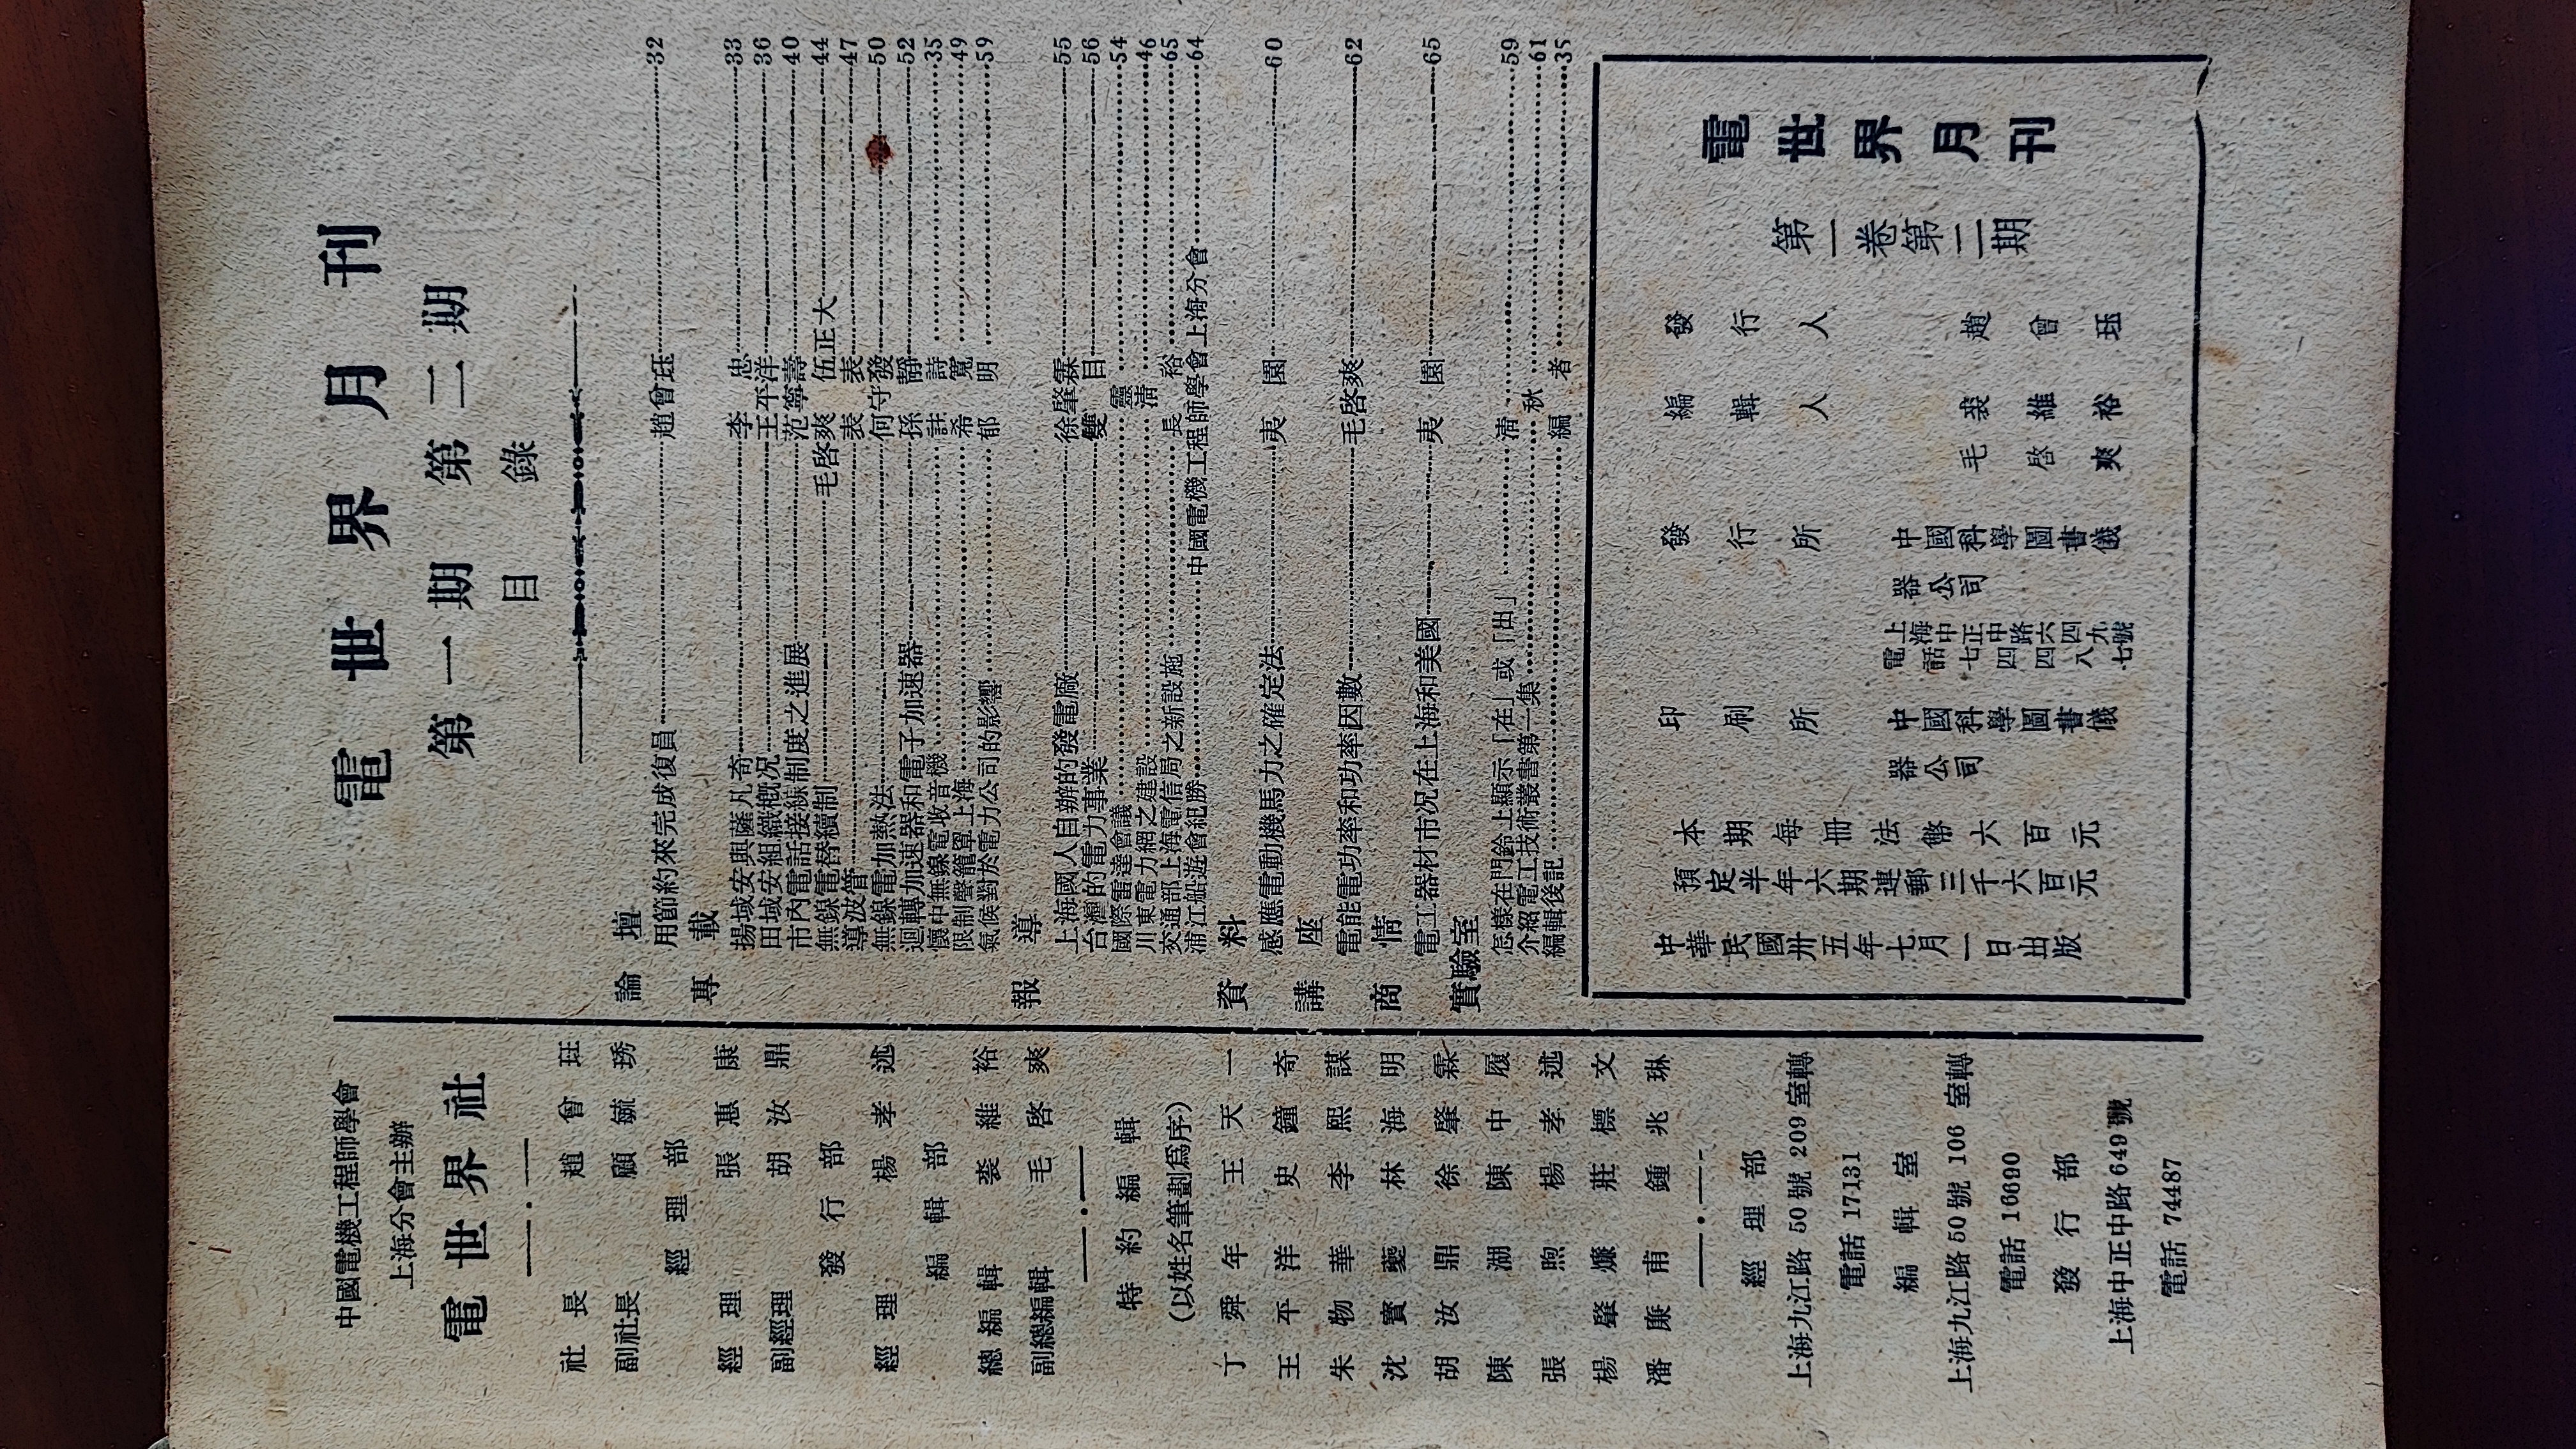 中國電機工程師學會
上海分會主辦
電世界社
社長 趙曾珏
副社長 顧毓琇
經理部
經理 張惠康
副經理 胡汝鼎
發行部
經理 楊孝述
編輯部
總編輯 裘維裕
副總編輯 毛啓爽
特約編輯
(以姓名筆劃爲序)
丁舜年 王天一
王平洋 史鐘奇
朱物華 李熙謀
沈寶夔 林海明
胡汝鼎 徐肇霖
陳湖 陳中履
張煦 楊孝述
楊肇燫 莊標文
潘廉甫 鍾兆琳
經理部
上海九江路50號209室轉
電話 17131
編輯室
上海九江路50號106室轉
電話 16690
發行部
上海中正中路649號
電話 74487
電世界月刊
第一期 第二期
目錄
論壇
用節約來完成復員 趙曾珏 32
專載
揚域安與薩凡奇 李忠 33
田域安組織概况 王平洋 36
市內電話接綫制度之進展 范寧壽 40
無線電替續制 毛啓爽 伍正大 44
導波管 表表 47
無線電加熱法 何守發 50
迴轉加速器和電子加速器 孫靜 52
懷中無線電收音機 註詩 35
限制聲籠罩上海 希寬 49
氣侯對於電力公司的影響 郁明 59
報導
上海國人自辦的發電廠 徐肇霖 55
台灣的電力事業 雙目 56
國際雷達會議 靈 54
川東電力網之建設 清 46
交通部上海電信局之新設施 長裕 65
浦江船遊會紀勝 中國電機工程師學會上海分會 64
資料
感應電動機馬力之確定法 夷園 60
講座
電能電功率和功率因數 毛啓爽 62
商情
電工器材市况在上海和美國 夷園 65
實驗室
怎樣在門鈴上顯示「在」或「出」 清 59
介紹電工技術叢書第一集 秋 61
編輯後記 編者 35
電世界月刊
第一卷第二期
發行人 趙曾珏
編輯人 裘維裕
毛啓爽
發行所 中國科學圖書儀
器公司
上海中正中路六四九號
電話七四四八七
印刷所 中國科學圖書儀
器公司
本期每冊法幣六百元
預定半年六期連郵三千六百元
中華民國卅五年七月一日出版